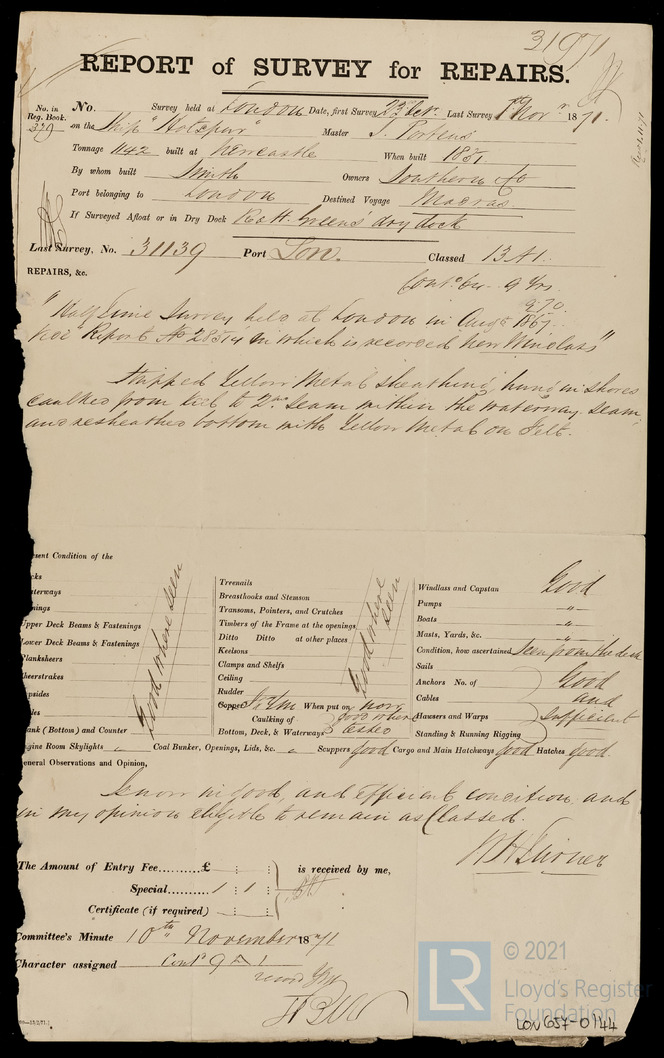 31971
REPORT of SURVEY for REPAIRS.
No. in Reg. Book. No. Survey held at London Date, first Survey 23 Oct. Last Survey 1st Novr 1871.
on the Ship "Hotspur" Master J. Perkins
Tonnage 1142 built at Newcastle When built 1851
By whom built Smith Owners Southern &Co
Port belonging to London Destined Voyage Madras
If Surveyed Afloat or in Dry Dock R & H. Green's dry dock
Last Survey, No. 31139 Port Lon. Classed 13 A1.
REPAIRS, &c. Contd 64 9 Yrs.
9.70
"Half Time Survey held at London in Augt 1867.
See Report No 28514 in which is recorded New Windlass"
Stripped Yellow Metal Sheathing, hung in shores
caulked from keel to 2nd seam within the waterway seam
and resheathed bottom with Yellow Metal on Felt.
esent Condition of the
cks
aterways
nings
Upper Deck Beams & Fastenings
Lower Deck Beams & Fastenings
Planksheers
heerstrakes
opsides
les
lank (Bottom) and Counter
Good where seen
Treenails
Breasthooks and Stemson
Transoms, Pointers, and Crutches
Timbers of the Frame at the openings
Ditto Ditto at other places
Keelsons
Clamps and Shelfs
Ceiling
Rudder
Good where seen
Copper Y/M When put on now
Caulking of Bottom, Deck, & Waterways good where tested
Windlass and Capstan Good
Pumps -"-
Boats -"-
Masts, Yards, &c. -"-
Condition, how ascertained Seen from the deck
Sails
Anchors No. of
Cables
Hausers and Warps
Standing & Running Rigging
Good and Sufficient
ngine Room Skylights " Coal Bunker, Openings, Lids, &c. " Scuppers good Cargo and Main Hatchways good Hatches good.
eneral Observations and Opinion,
Is now in good and efficient condition and
in my opinion eligible to remain as Classed.
The Amount of Entry Fee......£ : : is received by me,
Special......... 1 : 1
Certificate (if required) : :
Committee's Minute 10th November 1871
Character assigned Contd 9 A 1
© 2021
LR
Lloyd's Register
Foundation
LON657-0144